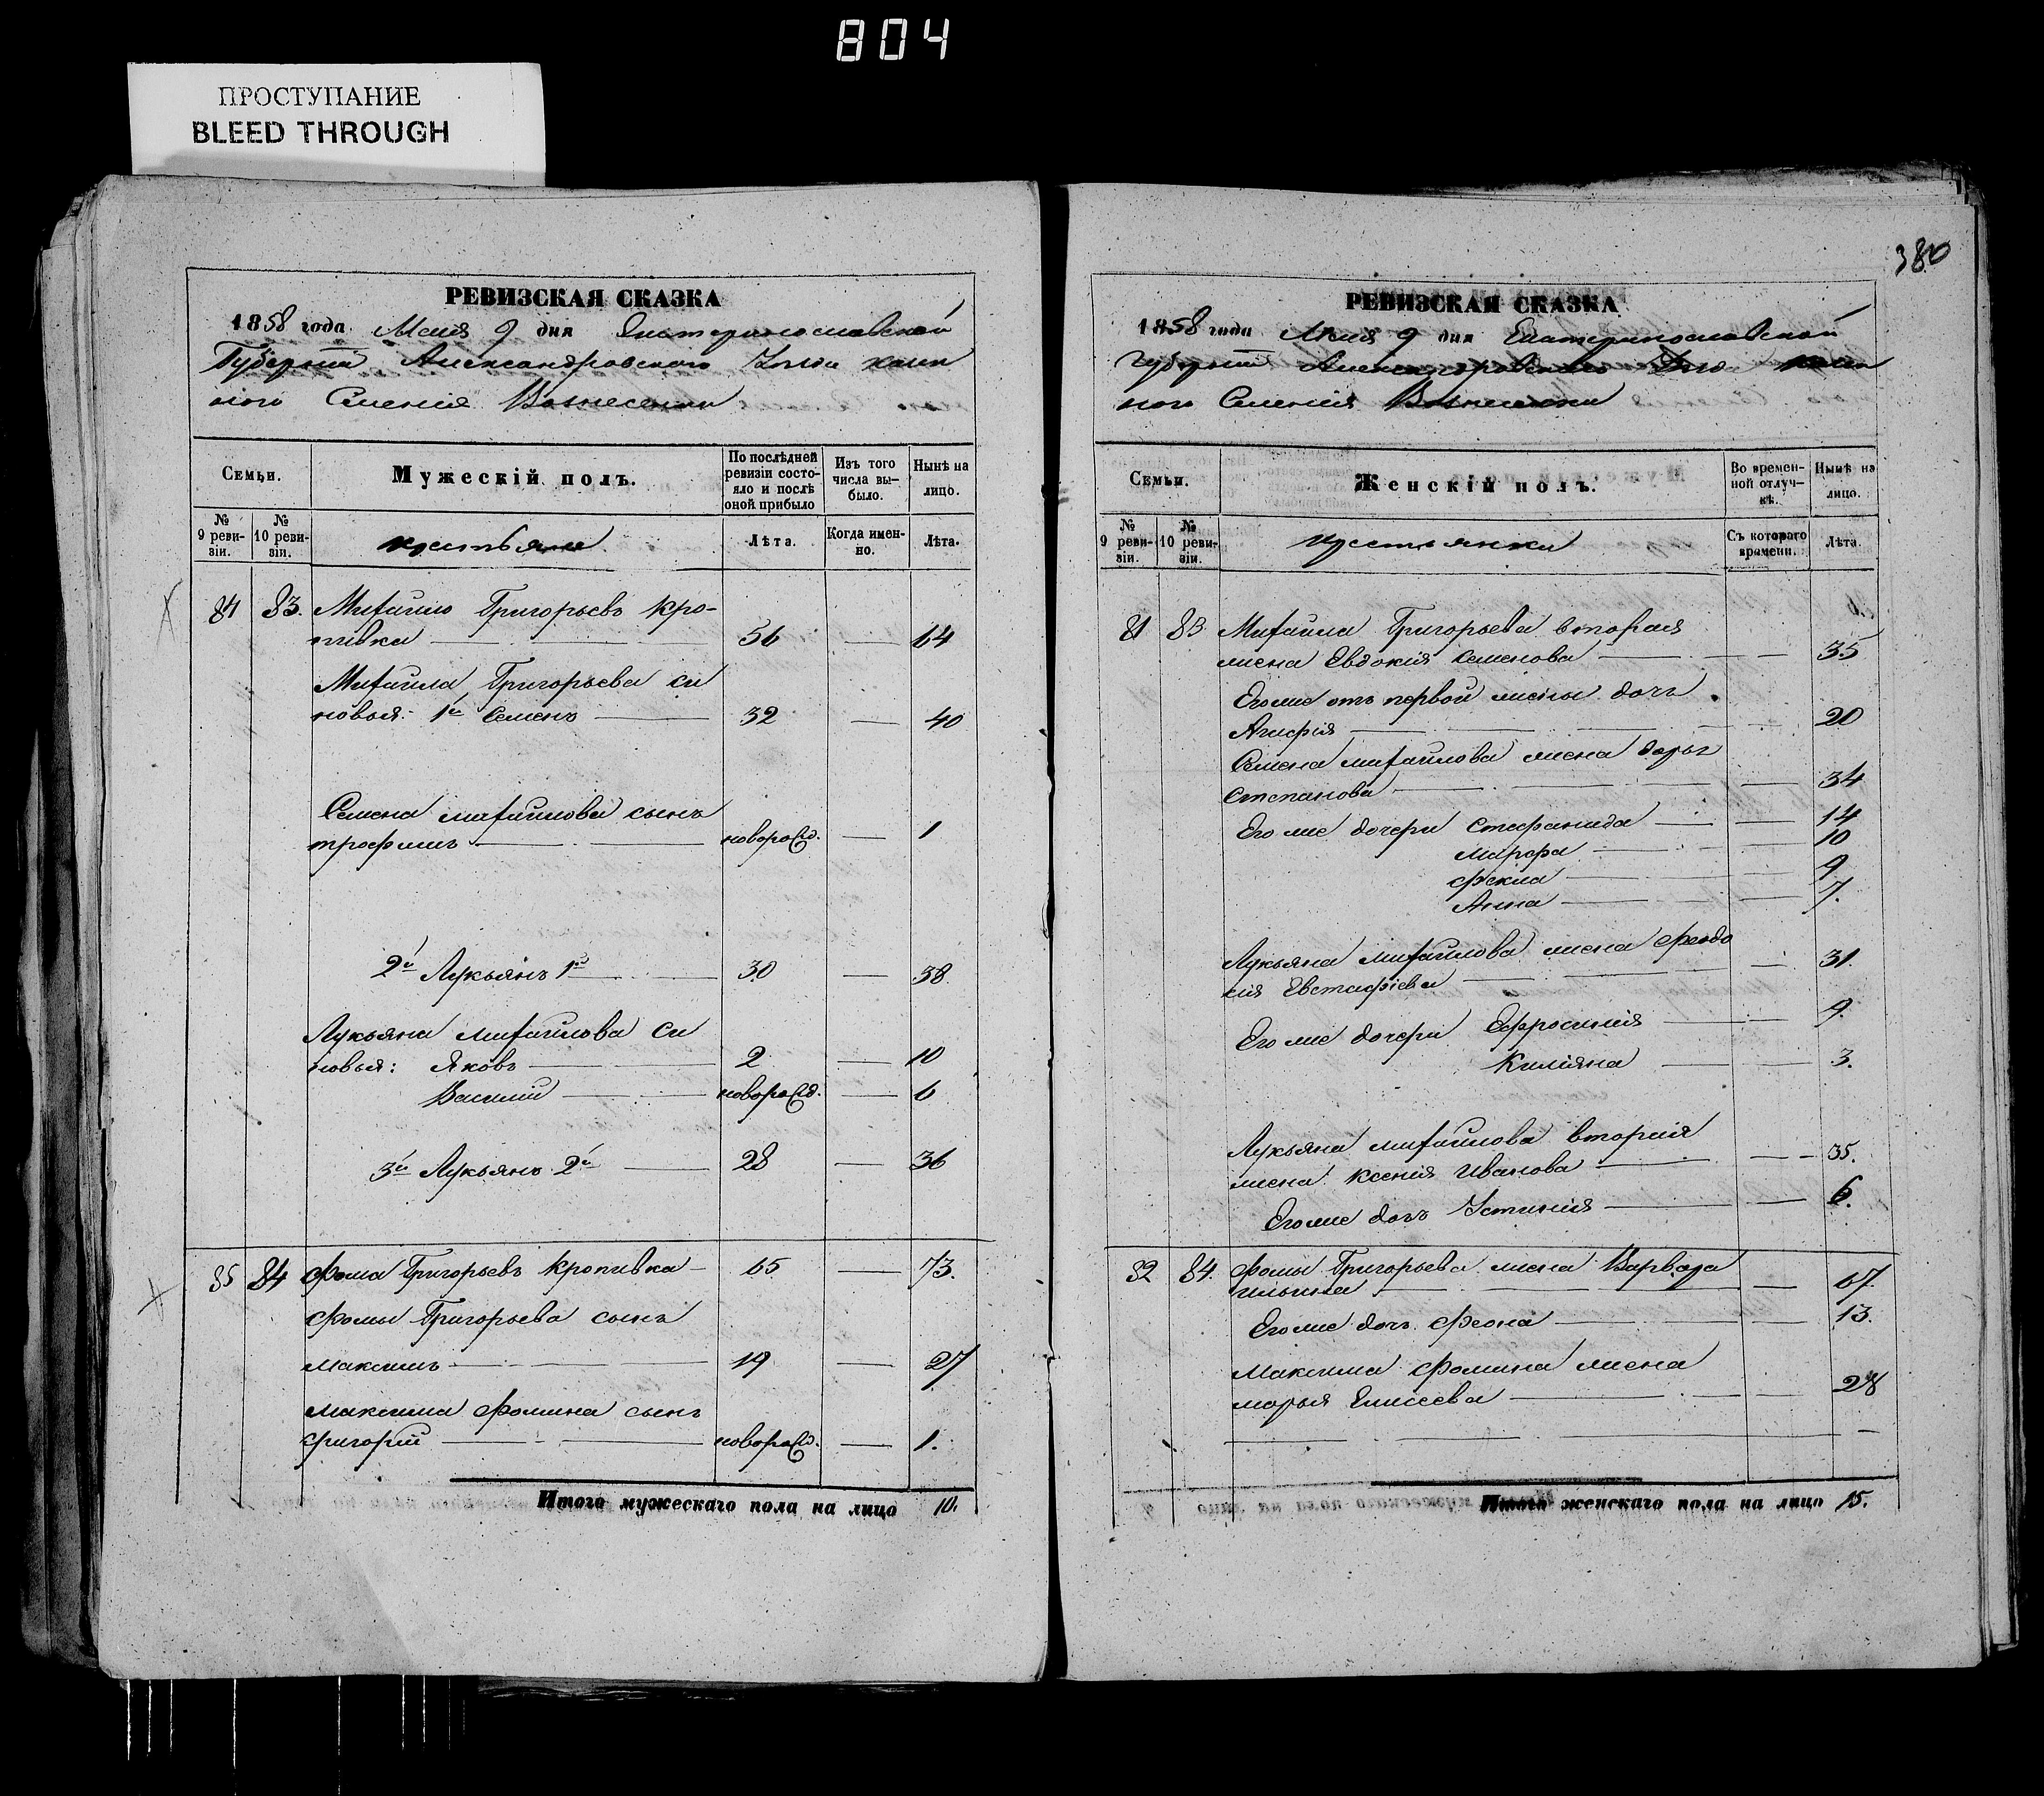 804
ПРОСТУПАНИЕ
BLEED THROUGH
РЕВИЗСКАЯ СКАЗКА
1858 года Мая 9 дня Екатеринославской
Губерніи Александровского Уезда казен
ного Селенія Вознесенки
Семьи.
Мужескій полъ.
По послѣдней ревизіи состояло и послѣ оной прибыло
Изъ того числа выбыло.
Нынѣ на лицо.
№ 9 ревизіи.
№ 10 ревизіи.
крестьяне
Лѣта.
Когда именно.
Лѣта.
84 83. Михайло Григорьевъ Кро-
пивка 56 — 64
Михайла Григорьева си
новья: 1й Семенъ 32 — 40
Семена михайлова сынъ
трофимъ новорожд. — 1
2й Лукьянъ 1й 30 — 38
Лукьяна михайлова си
новья: Яковъ 2 — 10
Василий новорожд. — 6
3й Лукьянъ 2й 28 — 36
85 84 Фома Григорьевъ Кропивка 65 — 73.
Фомы Григорьева сынъ
максимъ 19 — 27
максима Фомина сынъ
григорий новорожд. — 1.
Итого мужескаго пола на лицо 10.
380
РЕВИЗСКАЯ СКАЗКА
1858 года Мая 9 дня Екатеринославской
Губерніи Александровского казен
ного Селенія Вознесенки
Семьи.
Женскій полъ.
Во временной отлучкѣ.
Нынѣ на лицо.
№ 9 ревизіи.
№ 10 ревизіи.
крестьянки
Съ котораго времени.
Лѣта.
81 83 Михайла Григорьева вторая
жена Евдокия Семенова — 35
Его же отъ первой жены дочь
Агафія 20
Семена михайлова жена дарья
Степанова — 34
Его же дочери Стефанида — 14
марфа — 10
фекла — 9
Анна — 7.
Лукьяна михайлова жена феодо
сія Евстафіева — 31.
Его же дочери Ефросинія — 9.
— 3.
Лукьяна михайлова вторая
жена Ксенія Иванова — 35.
Его же дочь Устинія — 6.
82 84. Фомы Григорьева жена Варвара
ильина — 67.
Его же дочь — 13.
Максима Фомина жена
марья Елисеева — 28
Итого женскаго пола на лицо 15.